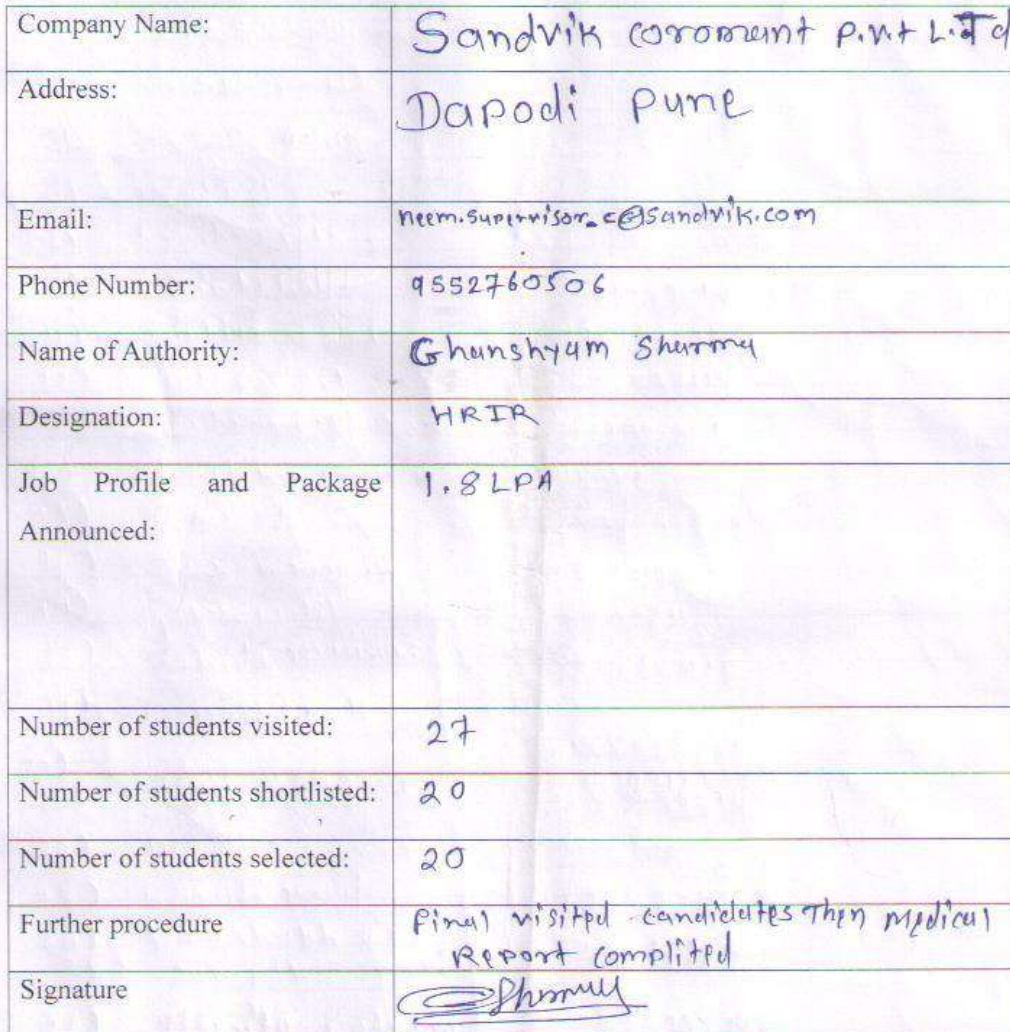 Company Name: Sandvik coromant P.v.t L.T d
Address: Dapodi Pune
Email: neem.supervisor_c@sandvik.com
Phone Number: 9552760506
Name of Authority: Ghanshyam Sharma
Designation: HRIR
Job Profile and Package 1.8 LPA
Announced:
Number of students visited: 27
Number of students shortlisted: 20
Number of students selected: 20
Further procedure Final visited candidates Then Medical
Report complited
Signature